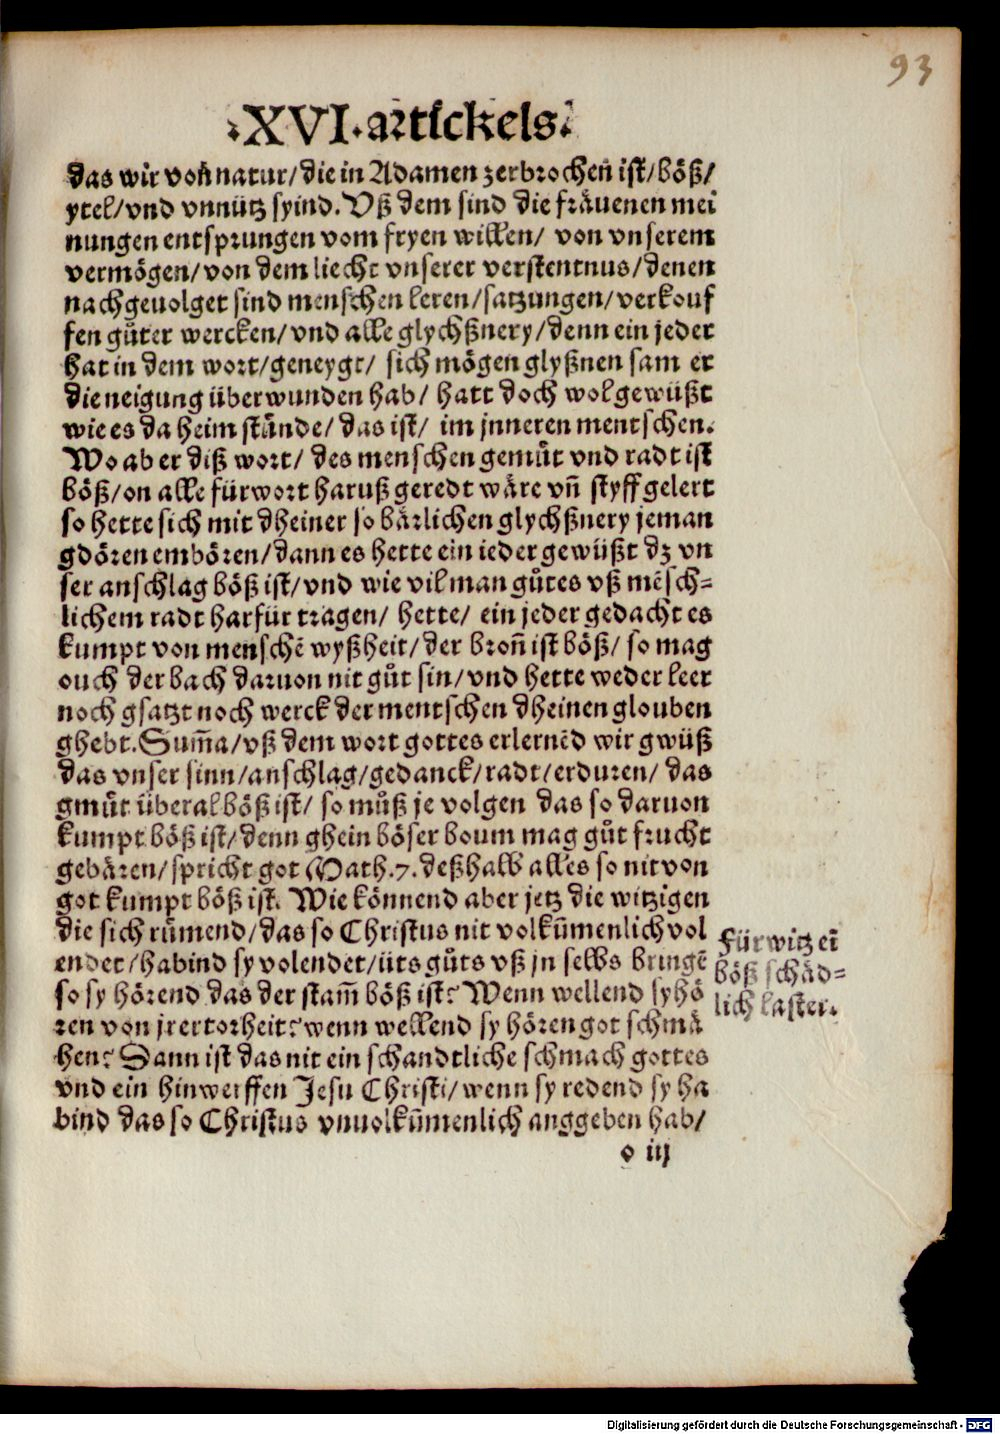 93
·XVI·artickels·
das wir von̄ natur/die in Adamen zerbrochen ist/böß/
ytel/vnd vnnütz syind. Vß dem sind die fräuenen mei
nungen entsprungen vom fryen willen/ von vnserem
vermögen/von dem liecht vnserer verstentnus/denen
nachgeuolget sind menschen leren/satzungen/verkouf
fen gůter wercken/vnd alle glychßnery/denn ein jeder
hat in dem wort/geneygt/ sich mögen glyßnen sam er
die neigung überwunden hab/ hatt doch wol gewüßt
wie es da heim stånde/das ist/ im jnneren mentschen.
Wo aber diß wort/ des menschen gemüt vnd radt ist
böß/on alle fürwort haruß geredt wäre vn̄ styff gelert
so hette sich mit dheiner so bärlichen glychßnery jeman
gdören embören/dann es hette ein ieder gewüßt dz vn
ser anschlag böß ist/vnd wie vil man gůtes vß mēsch-
lichem radt harfür tragen/ hette/ ein jeder gedacht es
kumpt von menschē wyßheit/der bron̄ ist böß/ so mag
ouch der bach daruon nit gůt sin/vnd hette weder leer
noch gsatzt noch werck der mentschen dheinen glouben
ghebt. Sum̄a/vß dem wort gottes erlernēd wir gwüß
das vnser sinn/anschlag/gedanck/radt/erduren/ das
gmüt überal böß ist/ so můß je volgen das so daruon
kumpt böß ist/denn ghein böser boum mag gůt frucht
gebären/spricht got Math.7. deßhalb alles so nit von
got kumpt böß ist. Wie könnend aber jetz die witzigen
die sich růmend/das so Christus nit volkum̄enlich vol
endet/habind sy volendet/üts gůts vß jn selbs bringē
so sy hörend das der stam̄ böß ist? Wenn wellend sy hö
ren von jrer torheit? wenn wellend sy hören got schmä
hen? Dann ist das nit ein schandtliche schmach gottes
vnd ein hinwerffen Jesu Christi/wenn sy redend sy ha
bind das so Christus vnuolkum̄enlich anggeben hab/
Fürwitz ein̄
böß schäd-
lich laster.
o iij
Digitalisierung gefördert durch die Deutsche Forschungsgemeinschaft - DFG